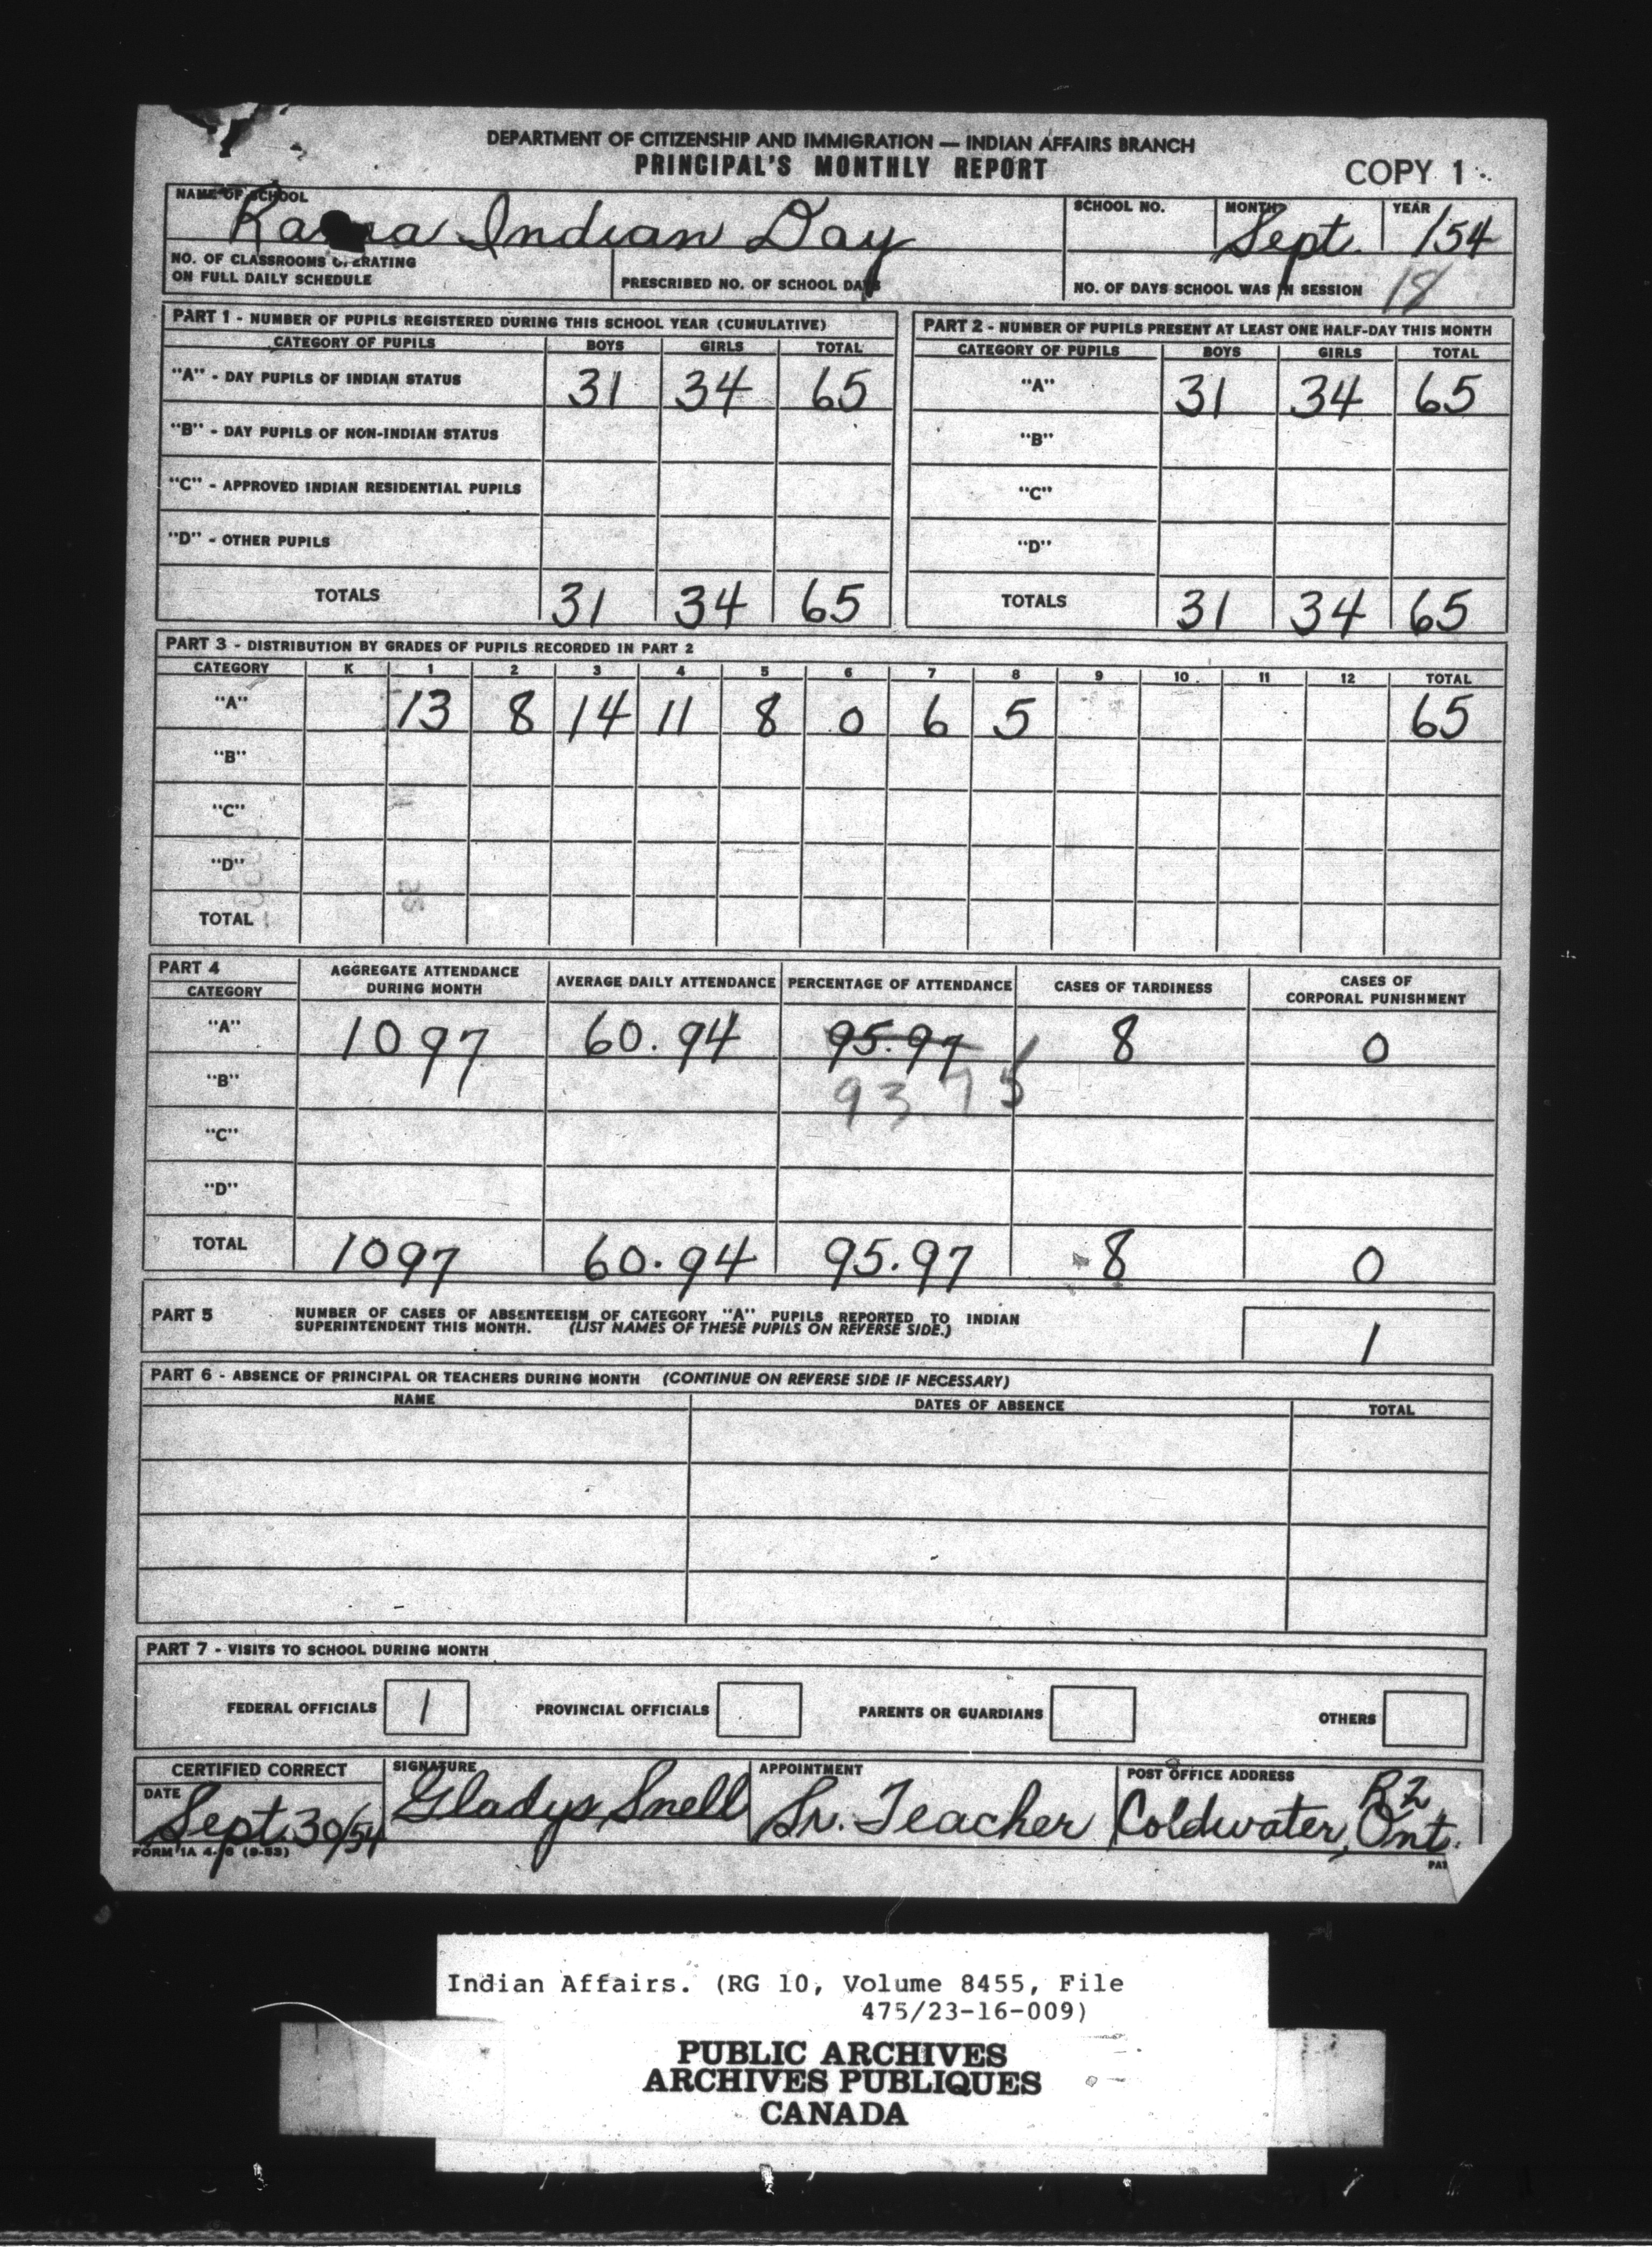 DEPARTMENT OF CITIZENSHIP AND IMMIGRATION — INDIAN AFFAIRS BRANCH
PRINCIPAL'S MONTHLY REPORT
COPY 1
NAME OF SCHOOL SCHOOL NO. MONTH YEAR
Indian Day Sept. /54
NO. OF CLASSROOMS OPERATING
ON FULL DAILY SCHEDULE PRESCRIBED NO. OF SCHOOL DAYS NO. OF DAYS SCHOOL WAS IN SESSION 18
PART 1 - NUMBER OF PUPILS REGISTERED DURING THIS SCHOOL YEAR (CUMULATIVE)
CATEGORY OF PUPILS BOYS GIRLS TOTAL
"A" - DAY PUPILS OF INDIAN STATUS 31 34 65
"B" - DAY PUPILS OF NON-INDIAN STATUS
"C" - APPROVED INDIAN RESIDENTIAL PUPILS
"D" - OTHER PUPILS
TOTALS 31 34 65
PART 2 - NUMBER OF PUPILS PRESENT AT LEAST ONE HALF-DAY THIS MONTH
CATEGORY OF PUPILS BOYS GIRLS TOTAL
"A" 31 34 65
"B"
"C"
"D"
TOTALS 31 34 65
PART 3 - DISTRIBUTION BY GRADES OF PUPILS RECORDED IN PART 2
CATEGORY K 1 2 3 4 5 6 7 8 9 10 11 12 TOTAL
"A" 13 8 14 11 8 0 6 5 65
"B"
"C"
"D"
TOTAL
PART 4
CATEGORY AGGREGATE ATTENDANCE DURING MONTH AVERAGE DAILY ATTENDANCE PERCENTAGE OF ATTENDANCE CASES OF TARDINESS CASES OF CORPORAL PUNISHMENT
"A" 1097 60.94 95.97 8 0
"B" 93.75
"C"
"D"
TOTAL 1097 60.94 95.97 8 0
PART 5 NUMBER OF CASES OF ABSENTEEISM OF CATEGORY "A" PUPILS REPORTED TO INDIAN
SUPERINTENDENT THIS MONTH. (LIST NAMES OF THESE PUPILS ON REVERSE SIDE.) 1
PART 6 - ABSENCE OF PRINCIPAL OR TEACHERS DURING MONTH (CONTINUE ON REVERSE SIDE IF NECESSARY)
NAME DATES OF ABSENCE TOTAL
PART 7 - VISITS TO SCHOOL DURING MONTH
FEDERAL OFFICIALS 1 PROVINCIAL OFFICIALS PARENTS OR GUARDIANS OTHERS
CERTIFIED CORRECT SIGNATURE APPOINTMENT POST OFFICE ADDRESS
DATE R2
Sept. 30/54 Gladys Snell Sr. Teacher Coldwater, Ont.
FORM 1A 4- (9-53)
Indian Affairs. (RG 10, Volume 8455, File
475/23-16-009)
PUBLIC ARCHIVES
ARCHIVES PUBLIQUES
CANADA